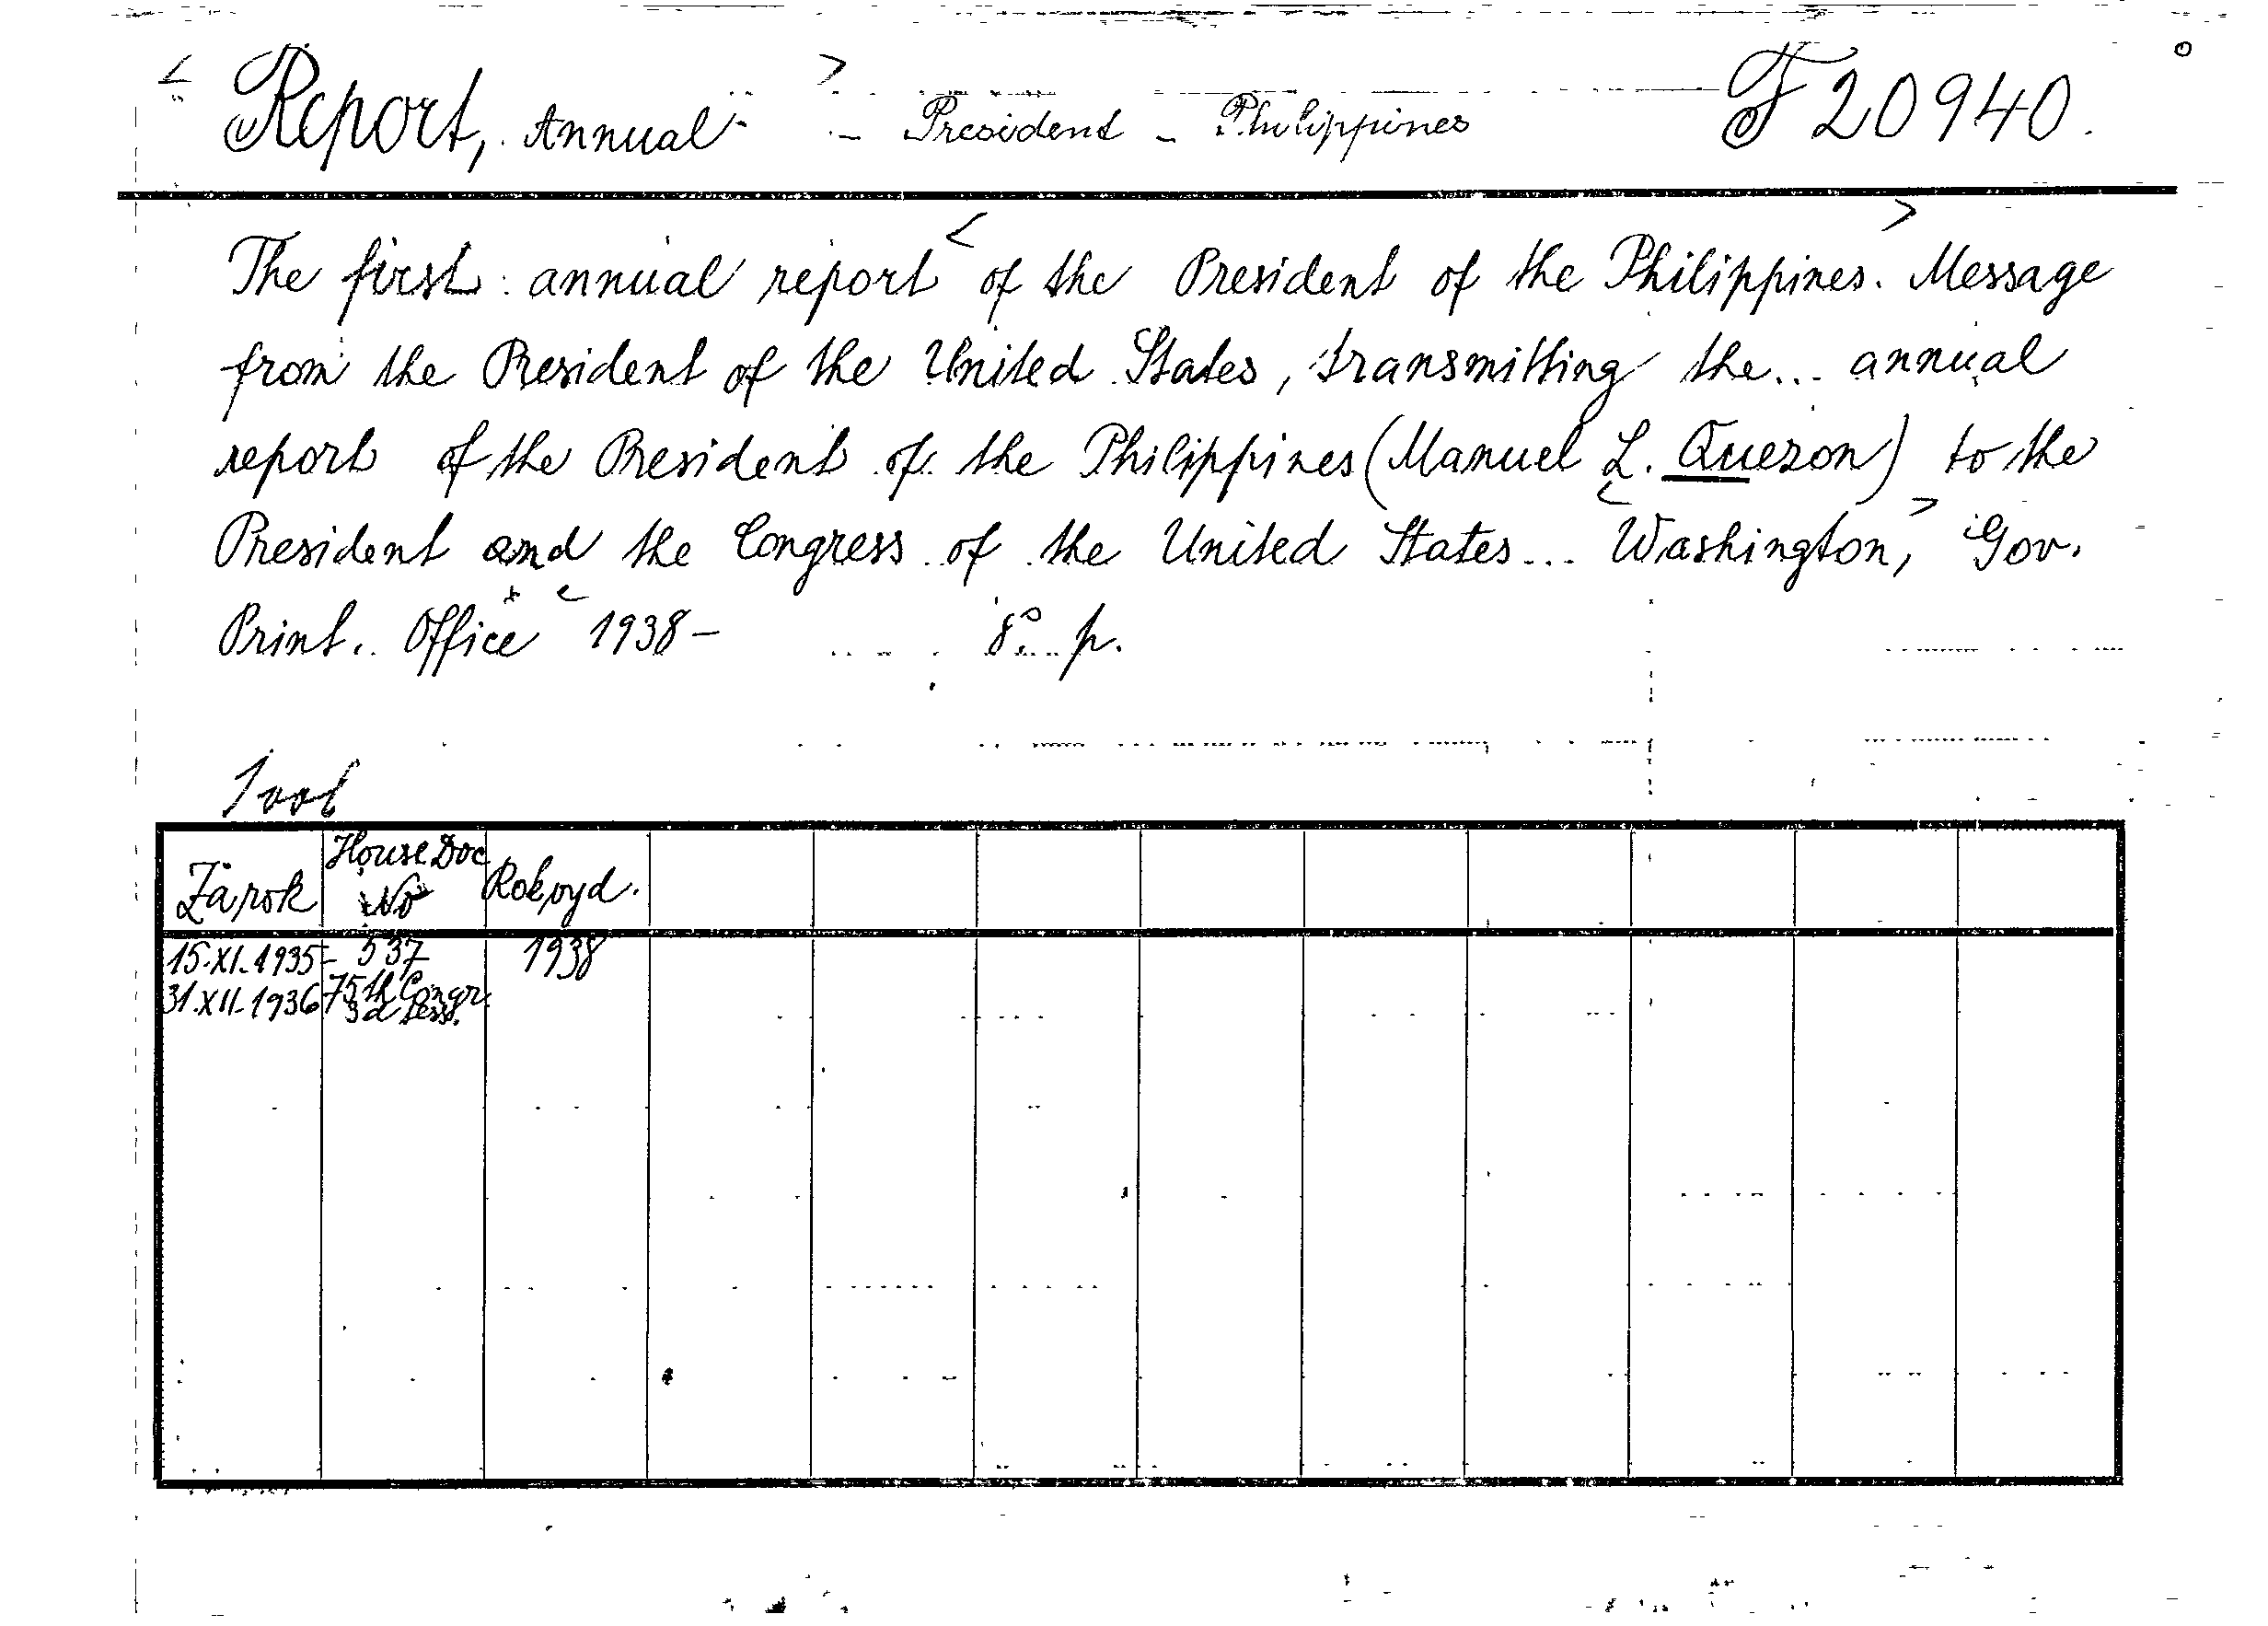 < Report, Annual > - President - Philippines F 20940.
The first annual report < of the President of the Philippines. > Message
from the President of the United States, transmitting the... annual
report of the President of the Philippines (Manuel L. Quezon) to the
President and the Congress of the United States... < Washington, > Gov.
Print. Office 1938- 8° p.
Zápok House Doc No Rok vyd.
15.XI.1935- 537 1938
31.XII.1936 75th Congr.
3d sess.